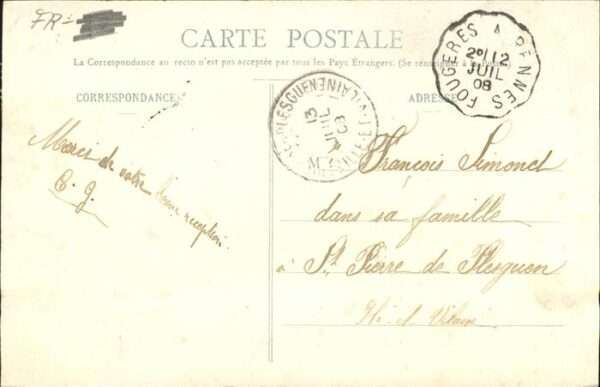 FR-
CARTE POSTALE
La Correspondance au recto n'est pas acceptée par tous les Pays Étrangers. (Se renseigner à la Poste)
CORRESPONDANCE
ADRESSE
FOUGERES A RENNES
2° 12
JUIL
08
PLESGUEN
ILLE-ET-VILAINE
13
JUIL
08
Merci de votre bonne réception
C. J.
François Simonel
dans sa famille
à St Pierre de Plesguen
Ille et Vilaine